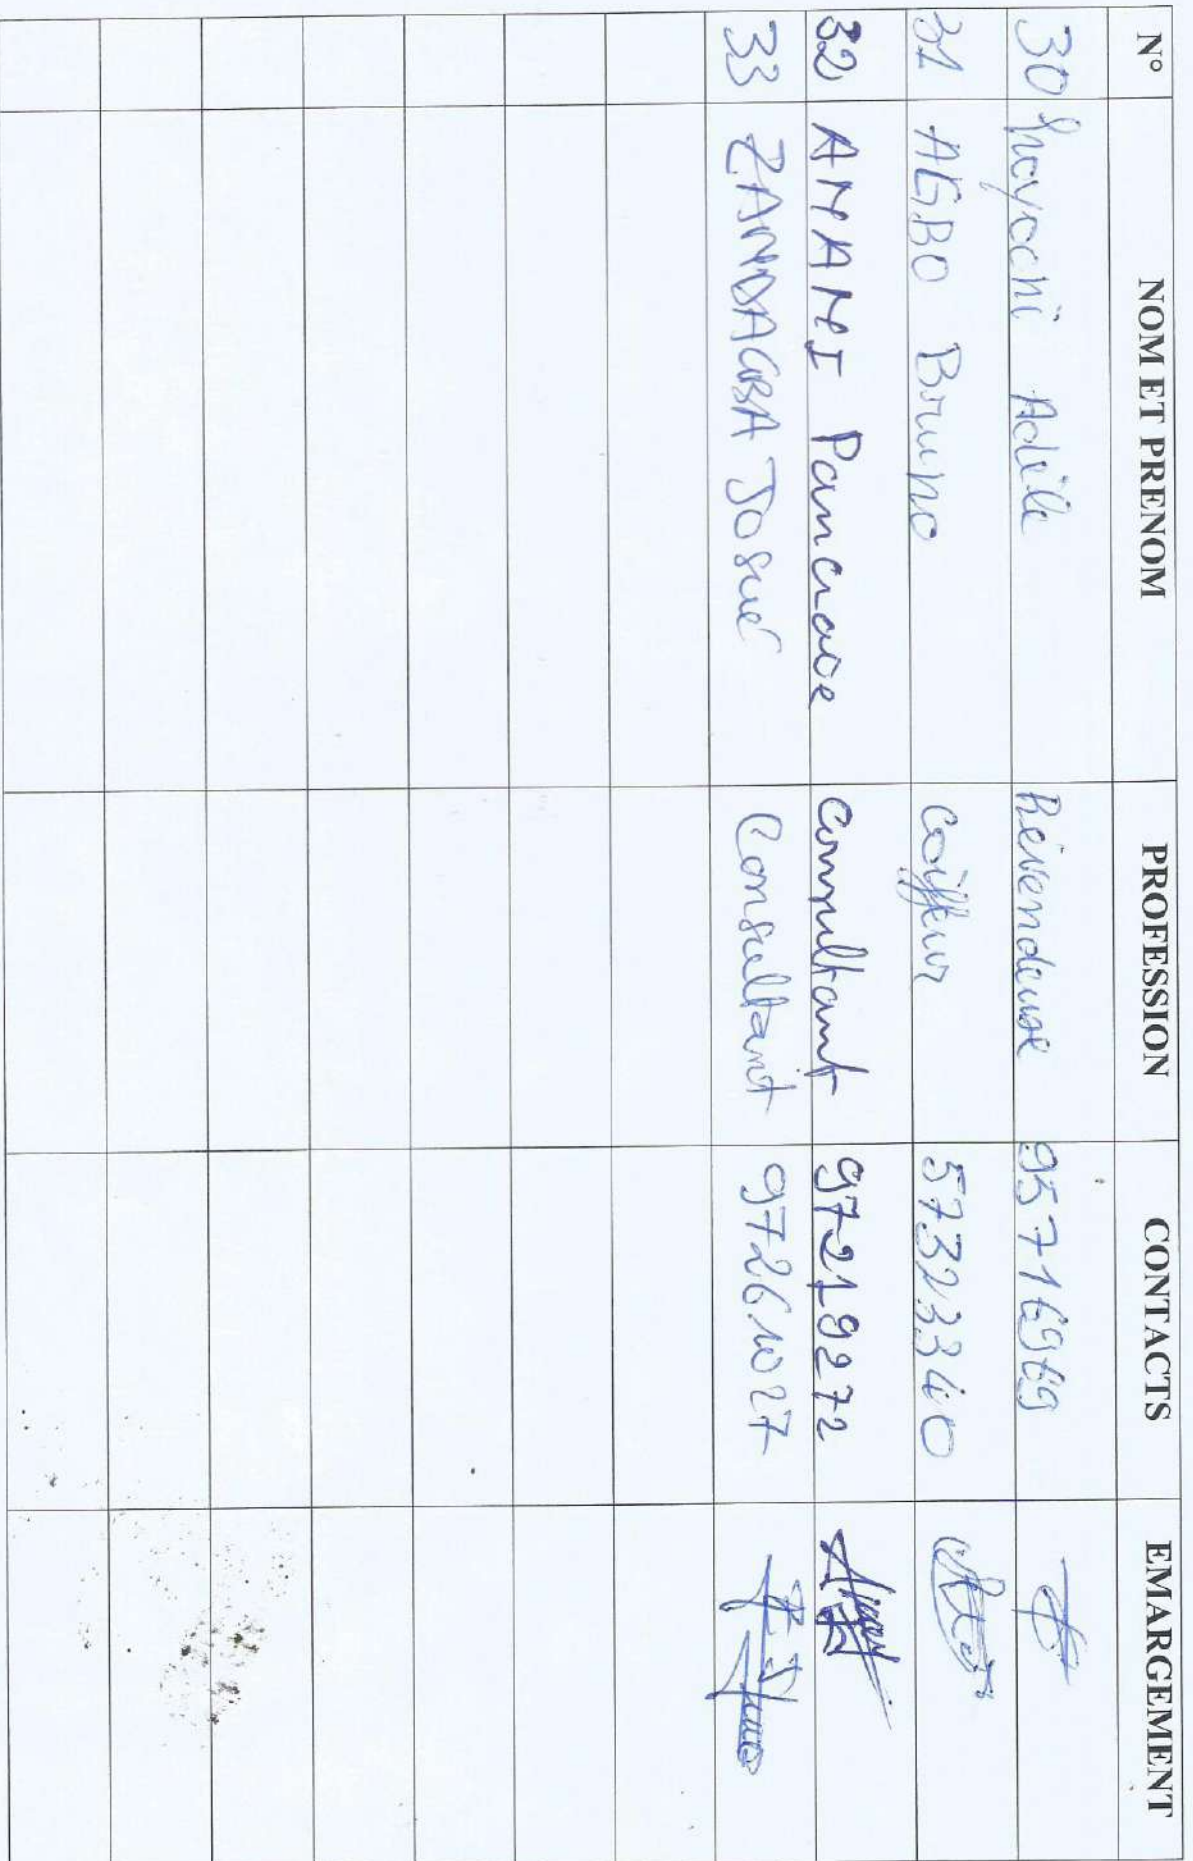 N° NOM ET PRENOM PROFESSION CONTACTS EMARGEMENT
30 Adèle Revendeuse 95716969
31 AGBO Bruno Coiffeur 57323340
32 AMAMI Pancrace consultant 97219272
33 ZANNDAGBA Josué Consultant 97261027